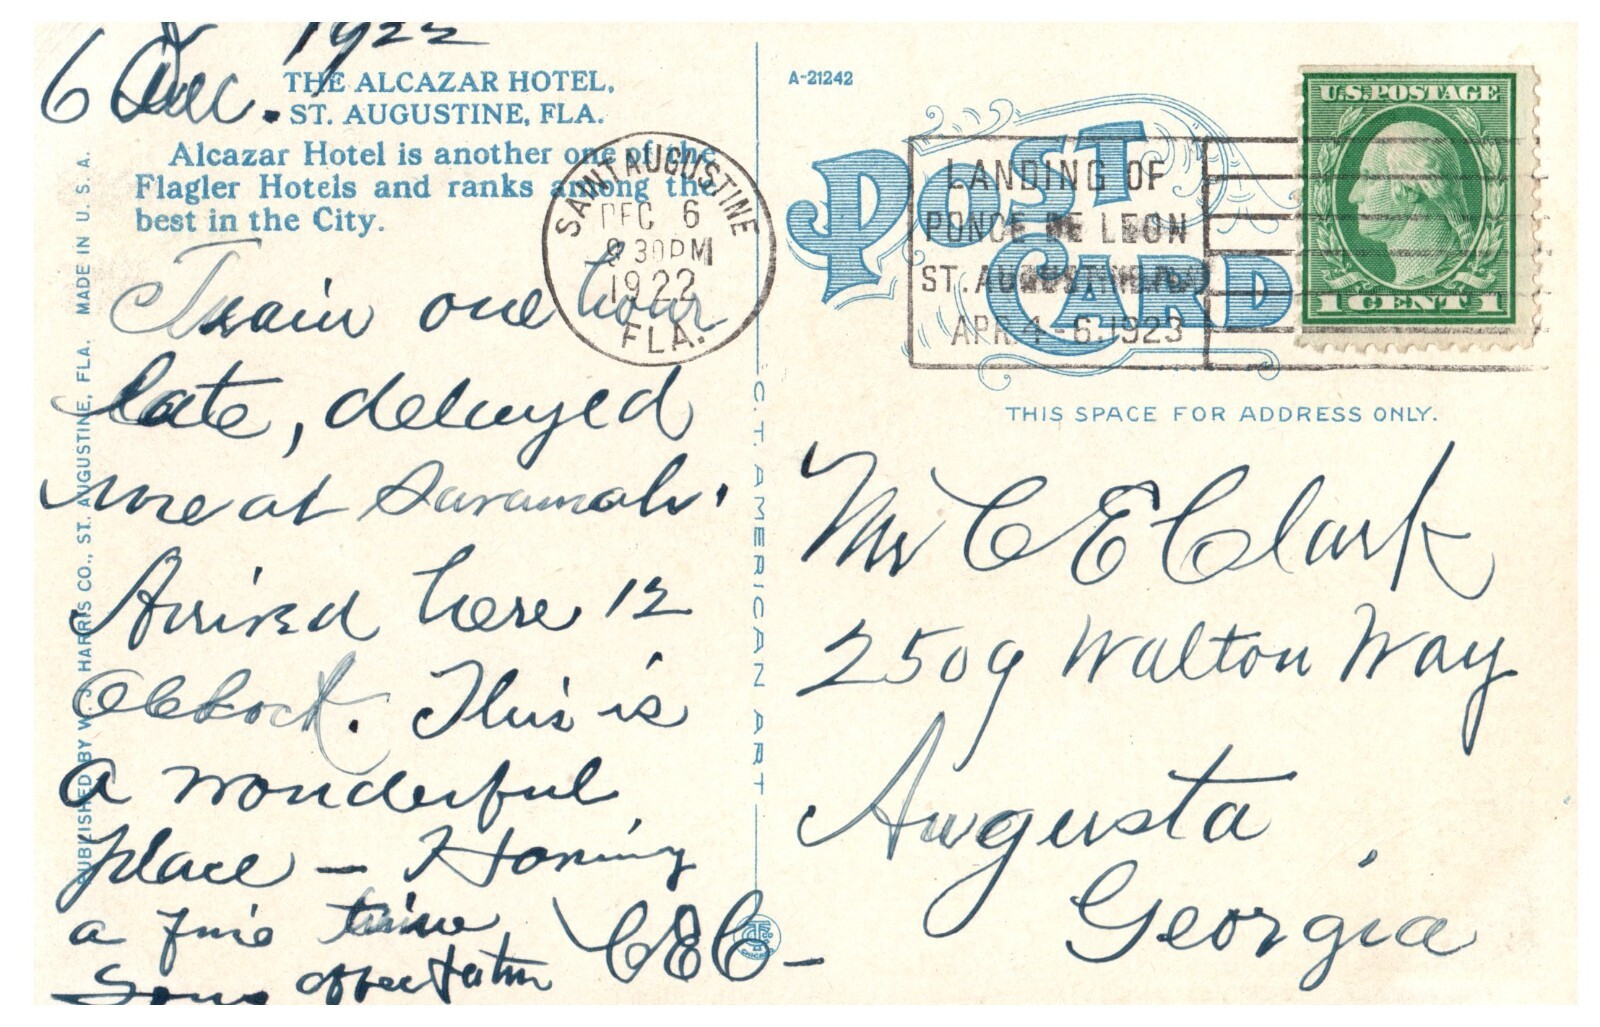 6 Dec. 1922
THE ALCAZAR HOTEL,
ST. AUGUSTINE, FLA.
Alcazar Hotel is another one of the
Flagler Hotels and ranks among the
best in the City.
Train one hour
late, delayed
more at Savannah.
Arrived here 12
O'clock. This is
a wonderful
place — Having
a fine time
affectation
CEC—
PUBLISHED BY W. J. HARRIS CO., ST. AUGUSTINE, FLA. MADE IN U.S.A.
C. T. AMERICAN ART
SAINT AUGUSTINE
DEC 6
9 30PM
1922
FLA.
A-21242
POST
CARD
LANDING OF
PONCE DE LEON
ST. AUGUSTINE
APR. 4-6, 1923
U.S. POSTAGE
1 CENT 1
THIS SPACE FOR ADDRESS ONLY.
Mr C E Clark
2509 Walton Way
Augusta
Georgia